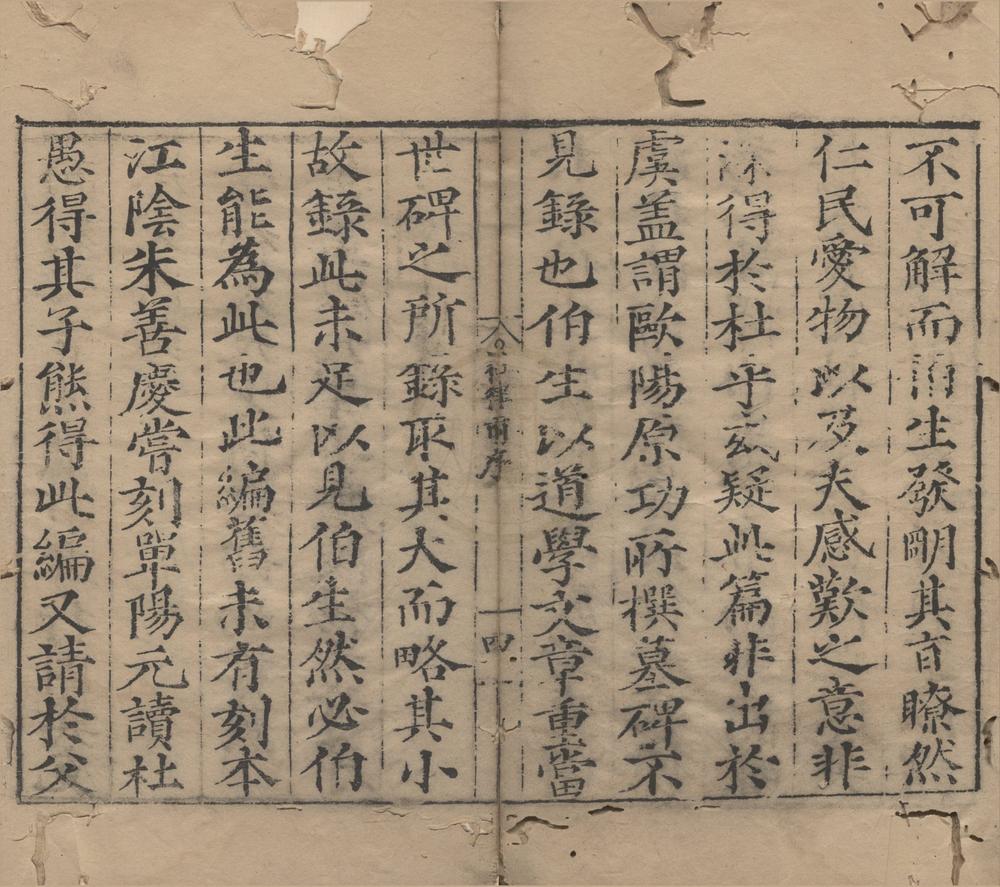 不可解而伯生發明其旨瞭然
仁民愛物以及夫感歎之意非
深得於杜乎或疑此篇非出於
虞盖謂歐陽原功所撰墓碑不
見錄也伯生以道學文章重當
杜律前序
四
世碑之所錄取其大而略其小
故錄此未足以見伯生然必伯
生能為此也此編舊未有刻本
江陰朱善慶嘗刻單陽元讀杜
愚得其子熊得此編又請於父